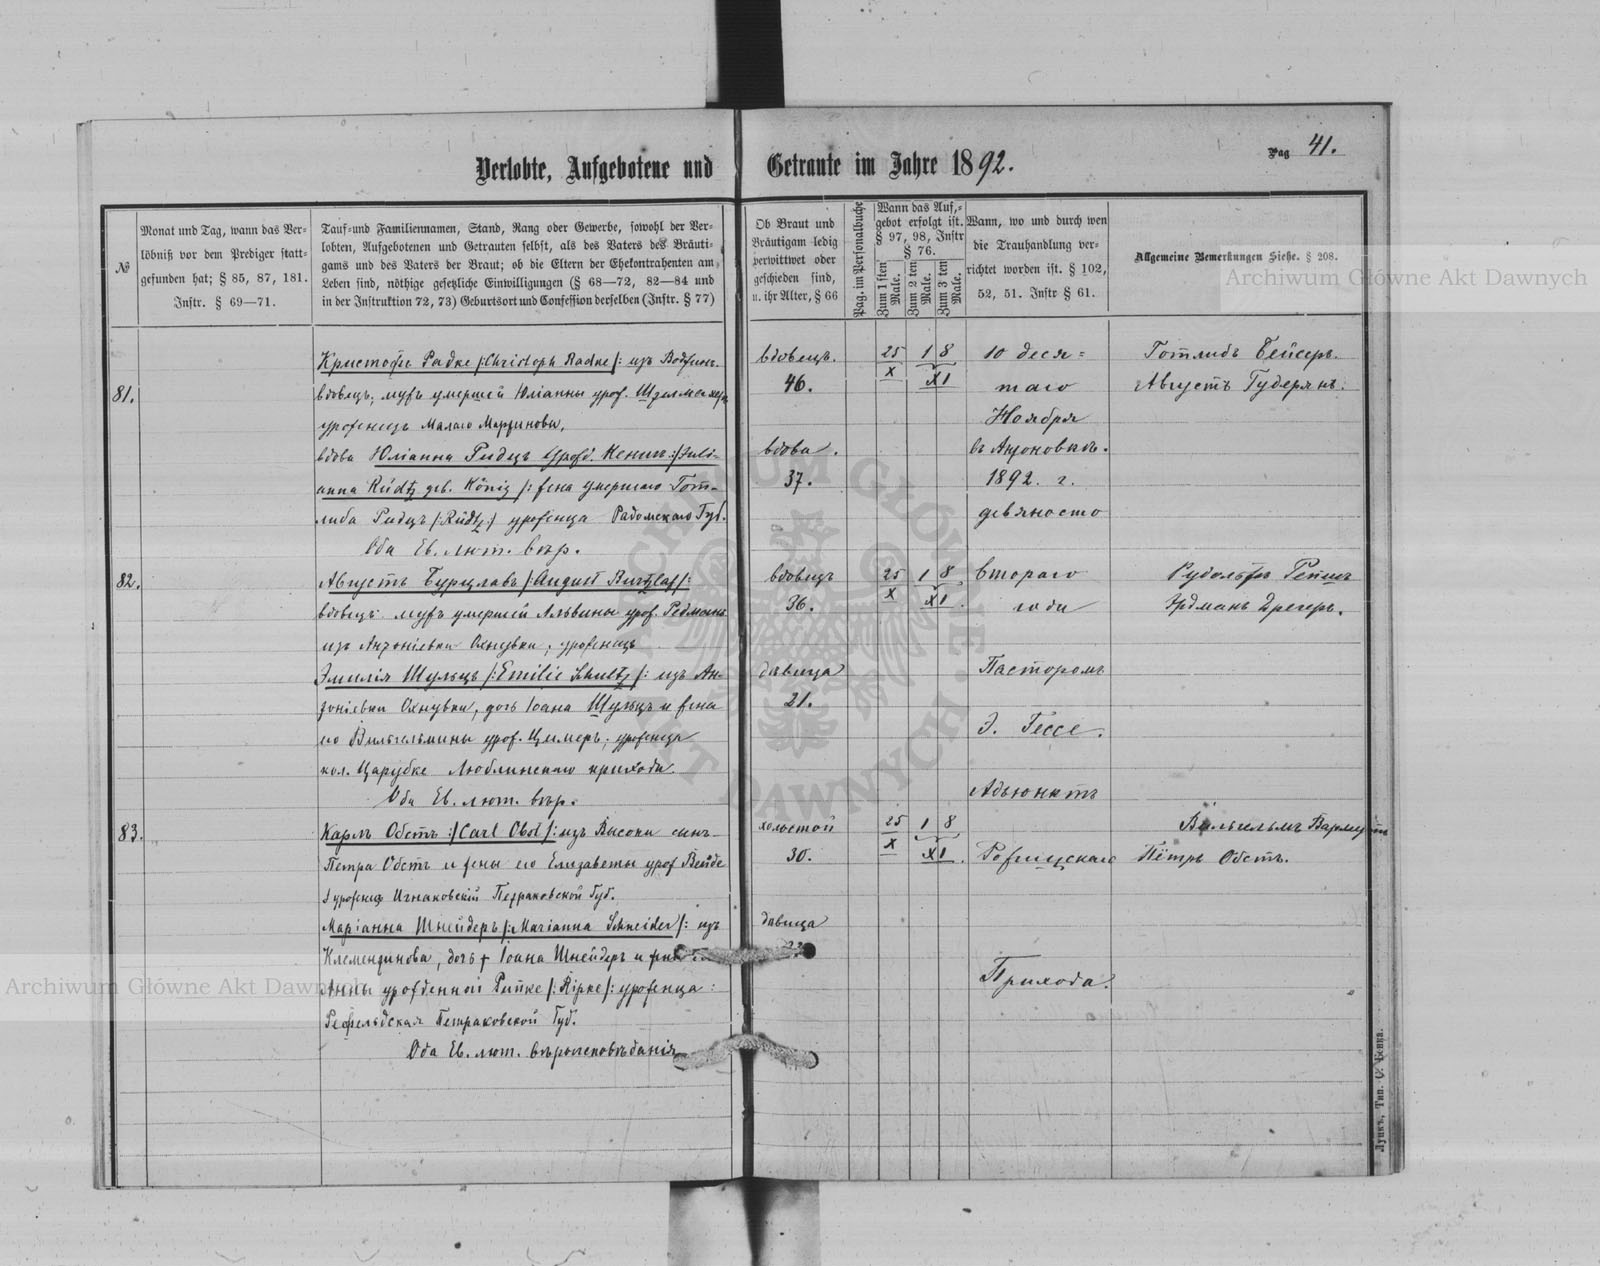 Verlobte, Aufgebotene und Getraute im Jahre 1892.
Pag 41.
№
Monat und Tag, wann das Ver-
löbniß vor dem Prediger statt-
gefunden hat; § 85, 87, 181.
Instr. § 69—71.
Tauf-und Familiennamen, Stand, Rang oder Gewerbe, sowohl der Ver-
lobten, Aufgebotenen und Getrauten selbst, als des Vaters des Bräuti-
gams und des Vaters der Braut; ob die Eltern der Ehekontrahenten am
Leben sind, nöthige gesetzliche Einwilligungen (§ 68—72, 82—84 und
in der Instruktion 72, 73) Geburtsort und Confession derselben (Instr. § 77)
Ob Braut und
Bräutigam ledig
verwittwet oder
geschieden sind,
u. ihr Alter, § 66
Pag. im Personalbuche
Wann das Auf-
gebot erfolgt ist.
§ 97, 98, Instr
§ 76.
Zum 1 sten Male.
Zum 2 ten Male.
Zum 3 ten Male.
Wann, wo und durch wen
die Trauhandlung ver-
richtet worden ist. § 102,
52, 51. Instr § 61.
Allgemeine Bemerkungen Siehe. § 208.
81.
Кристофъ Радке /:Christoph Radke/: изъ
вдовецъ, мужъ умершей Юліанны урож.
уроженецъ Малаго
вдова Юліанна Ридцъ урожд. Кенигъ :/Juli-
anna Rüdtz geb. König /: жена умершаго Гот-
либа Ридцъ /:Rüdtz:/ уроженца Радомскаго Губ.
Оба Ев. лют. вѣр.
вдовецъ.
46.
вдова.
37.
25 1 8
X XI
10 деся=
таго
Ноября
въ Антоновкѣ.
1892. г.
девяносто
Готлибъ Бейеръ.
Августъ Гудерянъ.
82.
Августъ Бурцлавъ /:August Burtzlaf/:
вдовецъ мужъ умершей Альвины урож. Редманъ
изъ Антоніевки Охнувки, уроженецъ
Эмилія Шульцъ /:Emilie Schultz/: изъ Ан-
тоніевки Охнувки, дочь Іоана Шульцъ и жена
его Вильгельмины урож. Цимеръ, уроженца
кол. Царубке Люблинскаго прихода
Оба Ев. лют. вѣр.
вдовецъ
36.
дѣвица
21.
25 1 8
X XI.
втораго
года
Пасторомъ
Э. Гессе.
Адъюнктъ
Рудольфъ
Эрдманъ Дрегеръ.
83.
Карлъ Обстъ :/Carl Obst/: изъ Высоки сынъ
Петра Обстъ и жены его Елизаветы урож Вейде
уроженца Петраковской Губ.
Маріанна Шнейдеръ /:Marianna Schneider/: изъ
Клементинова, дочь † Іоана Шнейдеръ и
Анны урожденной Рипке /:Ripke/: уроженца
Петраковской Губ.
Оба Ев. лют. вѣроисповѣданія
холостой
30.
дѣвица
25 1 8
X XI.
Рожищскаго
Прихода.
Вильгельмъ
Пётръ Обстъ.
Луцкъ, Тип. С. Бенка.
Archiwum Główne Akt Dawnych
Archiwum Główne Akt Dawnych
ARCHIWUM GŁÓWNE AKT DAWNYCH